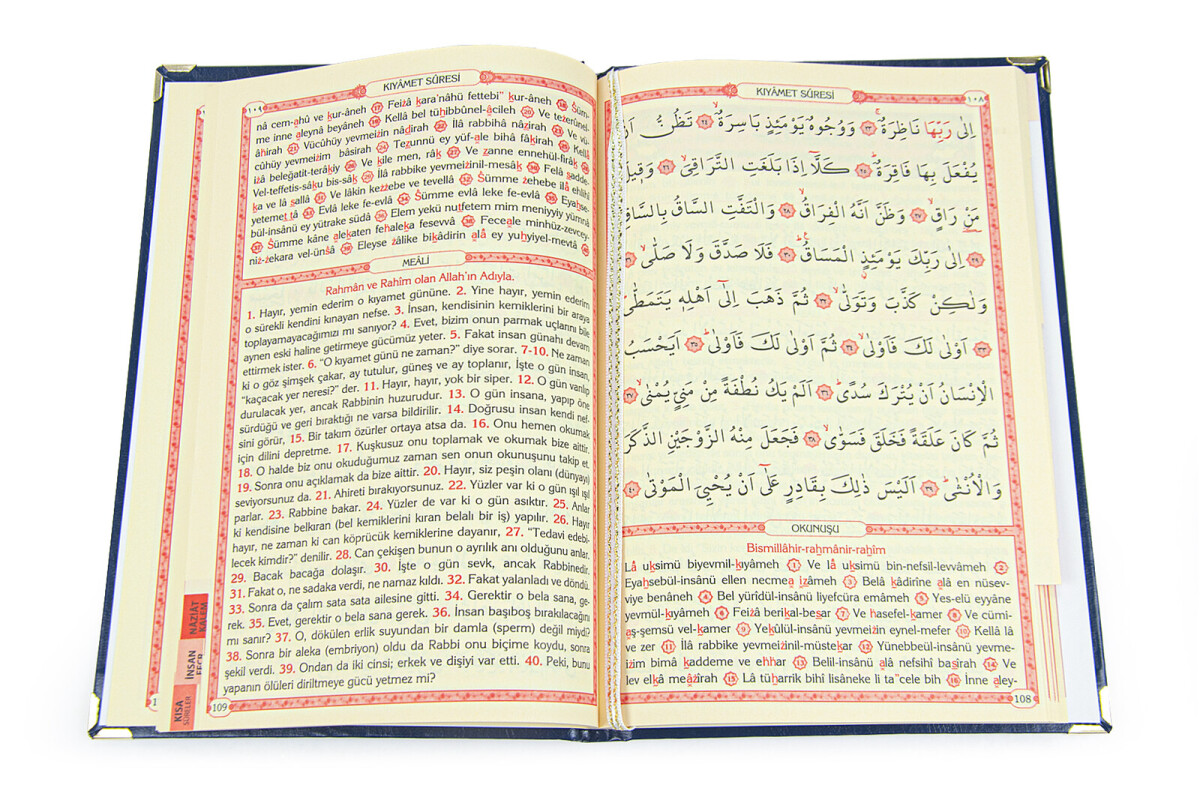 KIYÂMET SÛRESİ
١٠٨
اِلٰى رَبِّهَا نَاظِرَةٌۚ ﴿٢٣﴾ وَوُجُوهٌ يَوْمَئِذٍ بَاسِرَةٌۙ ﴿٢٤﴾ تَظُنُّ اَنْ
يُفْعَلَ بِهَا فَاقِرَةٌۜ ﴿٢٥﴾ كَلَّٓا اِذَا بَلَغَتِ التَّرَاقِيَۙ ﴿٢٦﴾ وَق۪يلَ
مَنْ رَاقٍۙ ﴿٢٧﴾ وَظَنَّ اَنَّهُ الْفِرَاقُۙ ﴿٢٨﴾ وَالْتَفَّتِ السَّاقُ بِالسَّاقِۙ
﴿٢٩﴾ اِلٰى رَبِّكَ يَوْمَئِذٍ الْمَسَاقُۜ ﴿٣٠﴾ فَلَا صَدَّقَ وَلَا صَلّٰىۙ ﴿٣١﴾
وَلٰكِنْ كَذَّبَ وَتَوَلّٰىۙ ﴿٣٢﴾ ثُمَّ ذَهَبَ اِلٰٓى اَهْلِه۪ يَتَمَطّٰىۜ
﴿٣٣﴾ اَوْلٰى لَكَ فَاَوْلٰىۙ ﴿٣٤﴾ ثُمَّ اَوْلٰى لَكَ فَاَوْلٰىۜ ﴿٣٥﴾ اَيَحْسَبُ
الْاِنْسَانُ اَنْ يُتْرَكَ سُدًىۜ ﴿٣٦﴾ اَلَمْ يَكُ نُطْفَةً مِنْ مَنِيٍّ يُمْنٰىۙ ﴿٣٧﴾
ثُمَّ كَانَ عَلَقَةً فَخَلَقَ فَسَوّٰىۙ ﴿٣٨﴾ فَجَعَلَ مِنْهُ الزَّوْجَيْنِ الذَّكَرَ
وَالْاُنْثٰىۜ ﴿٣٩﴾ اَلَيْسَ ذٰلِكَ بِقَادِرٍ عَلٰٓى اَنْ يُحْيِيَ الْمَوْتٰى ﴿٤٠﴾
OKUNUŞU
Bismillâhir-rahmânir-rahîm
Lâ uksimü biyevmil-kıyâmeh 1 Ve lâ uksimü bin-nefsil-levvâmeh 2
Eyahsebül-insânü ellen necmea izâmeh 3 Belâ kâdirîne alâ en nüsev-
viye benâneh 4 Bel yürîdül-insânü liyefcüra emâmeh 5 Yes-elü eyyâne
yevmül-kıyâmeh 6 Feizâ berikal-besar 7 Ve hasefel-kamer 8 Ve cümi-
aş-şemsü vel-kamer 9 Yekûlül-insânü yevmeizin eynel-mefer 10 Kellâ lâ
ve zer 11 İlâ rabbike yevmeizinil-müstekar 12 Yünebbeül-insânü yevme-
izim bimâ kaddeme ve ehhar 13 Belil-insânü alâ nefsihî basîrah 14 Ve
lev elkâ meâzîrah 15 Lâ tüharrik bihî lisâneke li ta"cele bih 16 İnne aley-
108
١٠٩
KIYÂMET SÛRESİ
nâ cem-ahû ve kur-âneh 17 Feizâ kara'nâhü fettebi" kur-âneh 18 Süm-
me inne aleynâ beyâneh 19 Kellâ bel tühibbûnel-âcileh 20 Ve tezerûnel-
âhirah 21 Vücûhüy yevmeizin nâdirah 22 İlâ rabbihâ nâzirah 23 Ve vü-
cûhüy yevmeizim bâsirah 24 Tezunnü ey yüf-ale bihâ fâkirah 25 Kellâ
izâ beleğatit-terâkiy 26 Ve kîle men, râk 27 Ve zanne ennehül-firâk 28
Vel-teffetis-sâku bis-sâk 29 İlâ rabbike yevmeizinil-mesâk 30 Felâ sadde-
ka ve lâ sallâ 31 Ve lâkin kezzebe ve tevellâ 32 Sümme zehebe ilâ ehlihî
yetemettâ 33 Evlâ leke fe-evlâ 34 Sümme evlâ leke fe-evlâ 35 Eyahse-
bül-insânü ey yütrake südâ 36 Elem yekü nutfetem mim meniyyiy yümnâ
37 Sümme kâne alekaten fehaleka fesevvâ 38 Feceale minhüz-zevcey-
niz-zekara vel-ünsâ 39 Eleyse zâlike bikâdirin alâ ey yuhyiyel-mevtâ 40
MEÂLİ
Rahmân ve Rahîm olan Allah'ın Adıyla.
1. Hayır, yemin ederim o kıyamet gününe. 2. Yine hayır, yemin ederim
o sürekli kendini kınayan nefse. 3. İnsan, kendisinin kemiklerini bir araya
toplayamayacağımızı mı sanıyor? 4. Evet, bizim onun parmak uçlarını bile
aynen eski haline getirmeye gücümüz yeter. 5. Fakat insan günahı devam
ettirmek ister. 6. "O kıyamet günü ne zaman?" diye sorar. 7-10. Ne zaman
ki o göz şimşek çakar, ay tutulur, güneş ve ay toplanır, İşte o gün insan,
"kaçacak yer neresi?" der. 11. Hayır, hayır, yok bir siper. 12. O gün varılıp
durulacak yer, ancak Rabbinin huzurudur. 13. O gün insana, yapıp öne
sürdüğü ve geri bıraktığı ne varsa bildirilir. 14. Doğrusu insan kendi nef-
sini görür, 15. Bir takım özürler ortaya atsa da. 16. Onu hemen okumak
için dilini depretme. 17. Kuşkusuz onu toplamak ve okumak bize aittir.
18. O halde biz onu okuduğumuz zaman sen onun okunuşunu takip et.
19. Sonra onu açıklamak da bize aittir. 20. Hayır, siz peşin olanı (dünyayı)
seviyorsunuz da. 21. Ahireti bırakıyorsunuz. 22. Yüzler var ki o gün ışıl ışıl
parlar. 23. Rabbine bakar. 24. Yüzler de var ki o gün asıktır. 25. Anlar
ki kendisine belkıran (bel kemiklerini kıran belalı bir iş) yapılır. 26. Hayır
hayır, ne zaman ki can köprücük kemiklerine dayanır, 27. "Tedavi edebi-
lecek kimdir?" denilir. 28. Can çekişen bunun o ayrılık anı olduğunu anlar.
29. Bacak bacağa dolaşır. 30. İşte o gün sevk, ancak Rabbinedir.
31. Fakat o, ne sadaka verdi, ne namaz kıldı. 32. Fakat yalanladı ve döndü.
33. Sonra da çalım sata sata ailesine gitti. 34. Gerektir o bela sana, ge-
rek. 35. Evet, gerektir o bela sana gerek. 36. İnsan başıboş bırakılacağını
mı sanır? 37. O, dökülen erlik suyundan bir damla (sperm) değil miydi?
38. Sonra bir aleka (embriyon) oldu da Rabbi onu biçime koydu, sonra
şekil verdi. 39. Ondan da iki cinsi; erkek ve dişiyi var etti. 40. Peki, bunu
yapanın ölüleri diriltmeye gücü yetmez mi?
109
NAZİAT
KALEM
İNSAN
FECR
KISA
SÛRELER